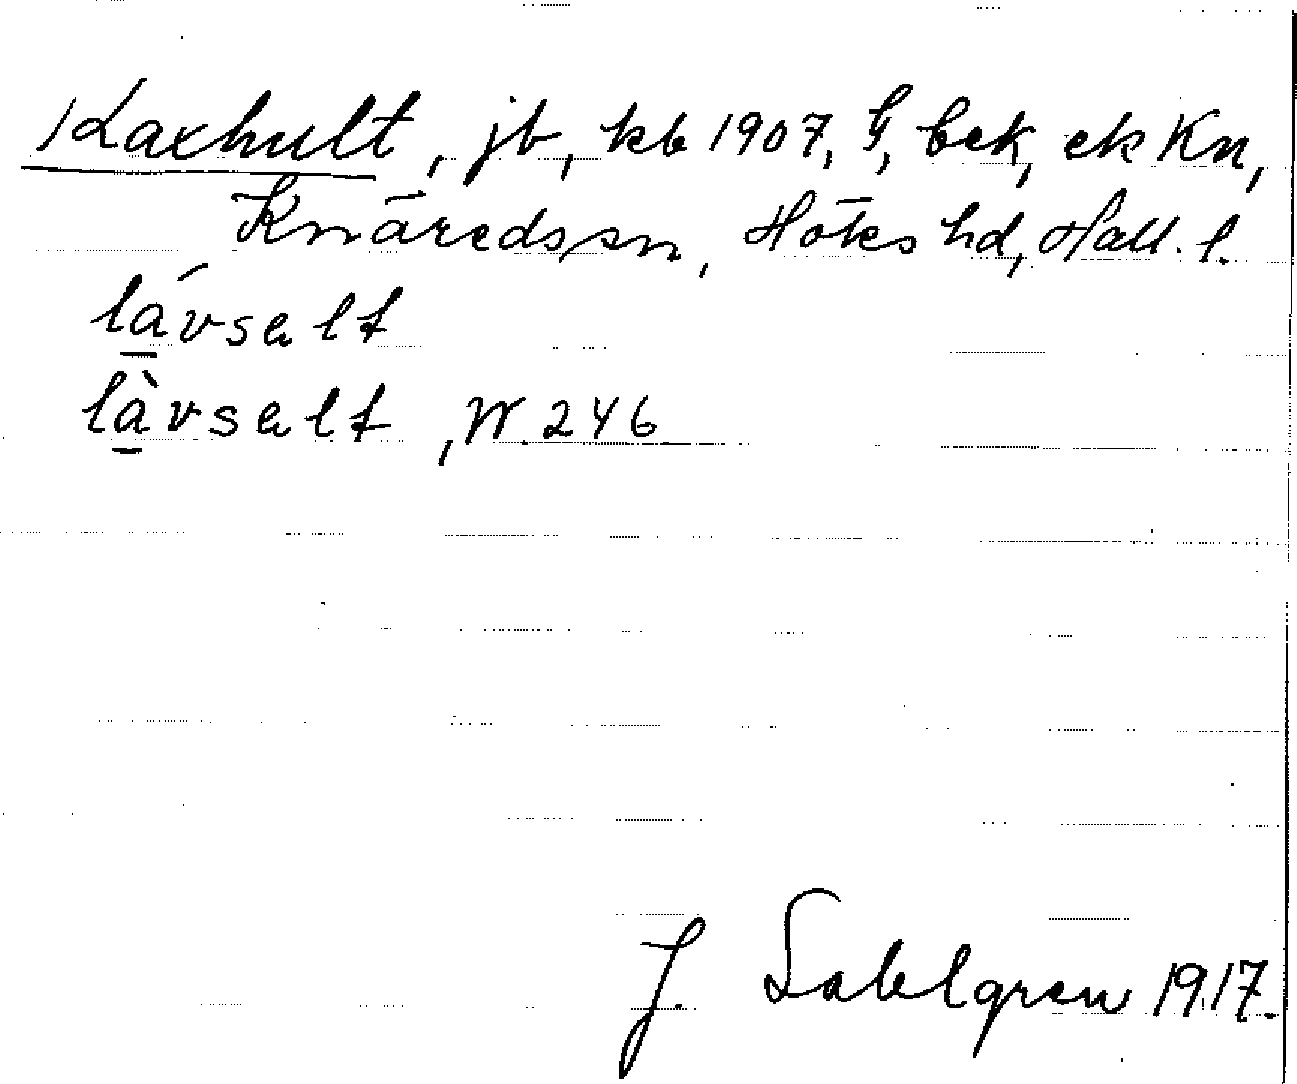 Laxhult, jb, kb 1907, G, bek, ek Kn,
Knäredssn, Höks hd, Hall. l.
lávsalt
làvsalt, W. 246
J. Sahlgren 1917.